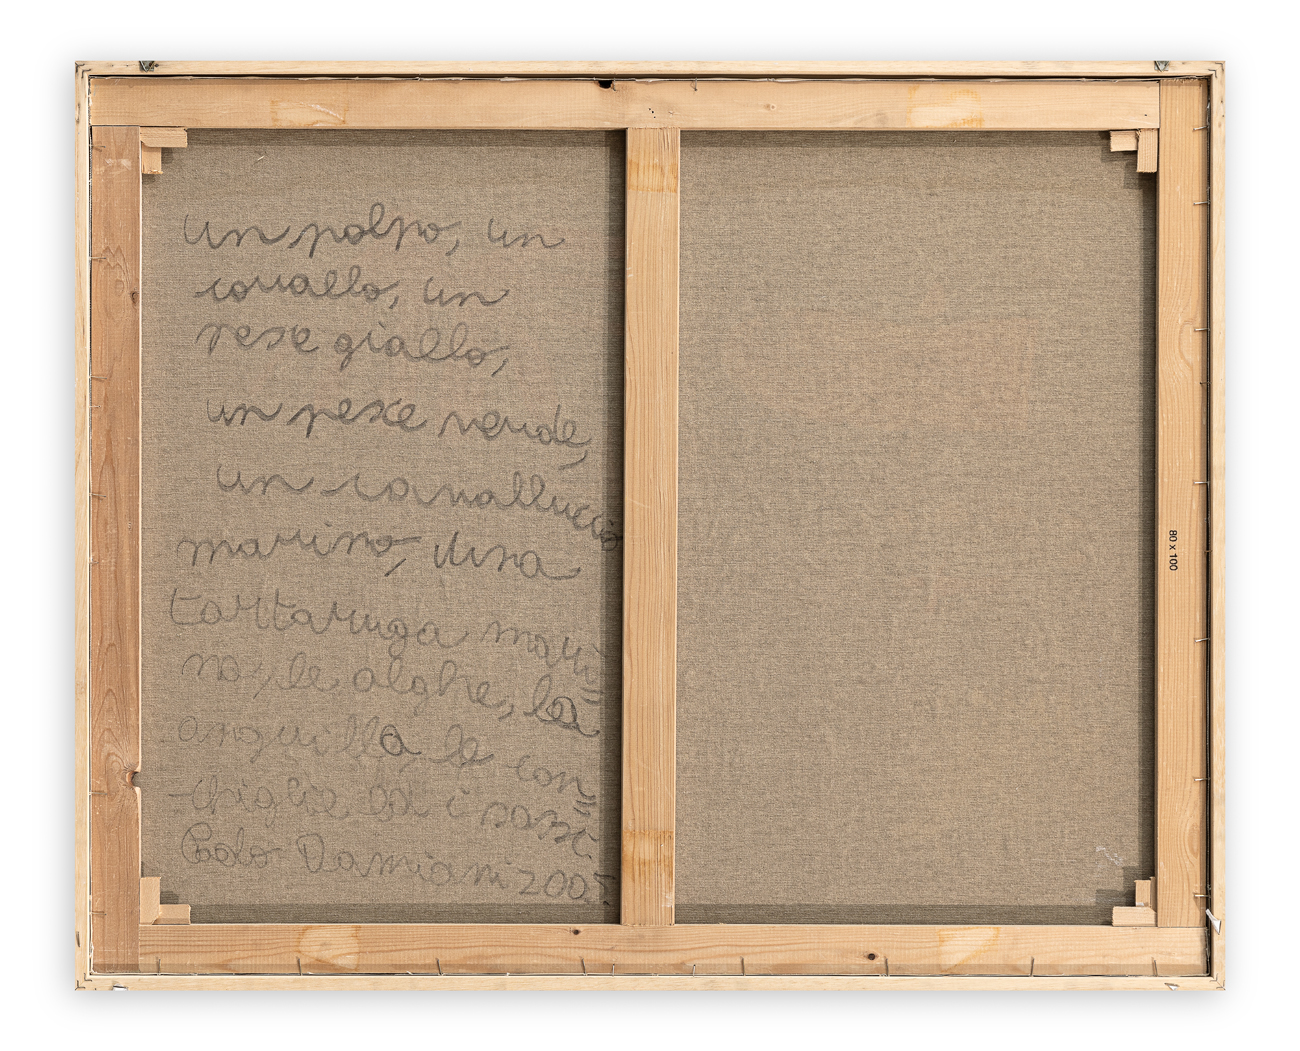 un polpo, un
cavallo, un
pesce giallo,
un pesce verde,
un cavalluccio
marino, una
tartaruga mari=
na, le alghe, la
anguilla, le con=
-chiglie ed i sassi.
Paolo Damiani 2005.
80 x 100